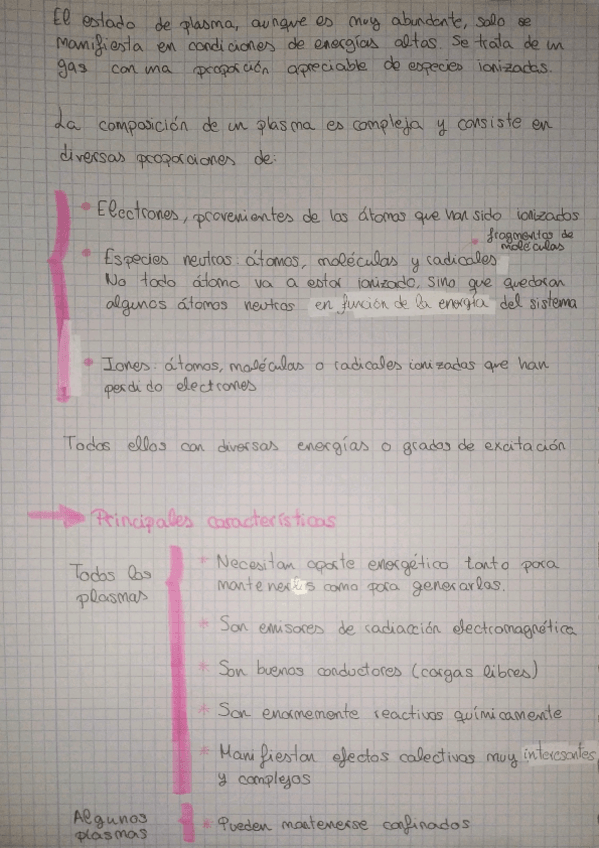 El estado de plasma, aunque es muy abundante, solo se
manifiesta en condiciones de energías altas. Se trata de un
gas con una proporción apreciable de especies ionizadas.
La composición de un plasma es compleja y consiste en
diversas proporciones de:
• Electrones, provenientes de los átomos que han sido ionizados
• fragmentos de
moléculas
• Especies neutras: átomos, moléculas y radicales
No todo átomo va a estar ionizado, sino que quedaran
algunos átomos neutros en función de la energía del sistema
• Iones: átomos, moléculas o radicales ionizadas que han
perdido electrones
Todos ellos con diversas energías o grados de excitación
→ Principales características
Todos los
plasmas
* Necesitan aporte energético tanto para
mantenerlos como para generarlos.
* Son emisores de radiacción electromagnética
* Son buenos conductores (cargas libres)
* Son enormemente reactivos químicamente
* Manifiestan efectos colectivos muy interesantes
y complejos
Algunos
plasmas
* Pueden mantenerse confinados